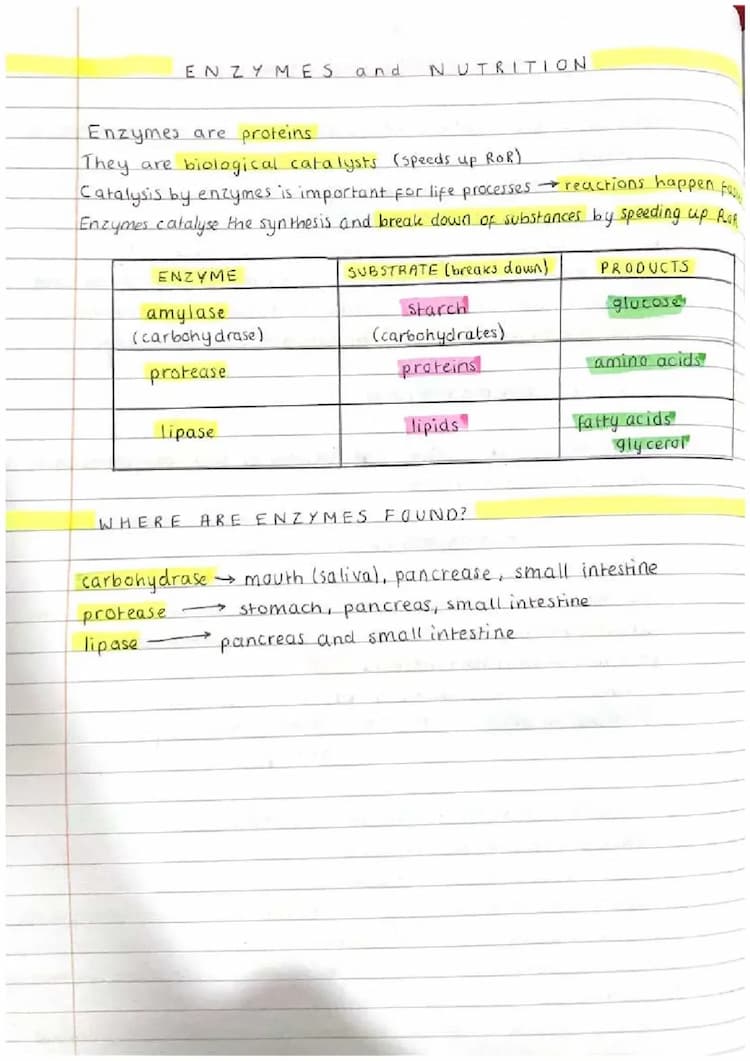 ENZYMES and NUTRITION
Enzymes are proteins
They are biological catalysts (speeds up RoR)
Catalysis by enzymes is important for life processes → reactions happen
Enzymes catalyse the synthesis and break down of substances by speeding up RoR
ENZYME SUBSTRATE (breaks down) PRODUCTS
amylase starch glucose
(carbohydrase) (carbohydrates)
protease proteins amino acids
lipase lipids fatty acids
glycerol
WHERE ARE ENZYMES FOUND?
carbohydrase → mouth (saliva), pancrease, small intestine
protease → stomach, pancreas, small intestine
lipase → pancreas and small intestine